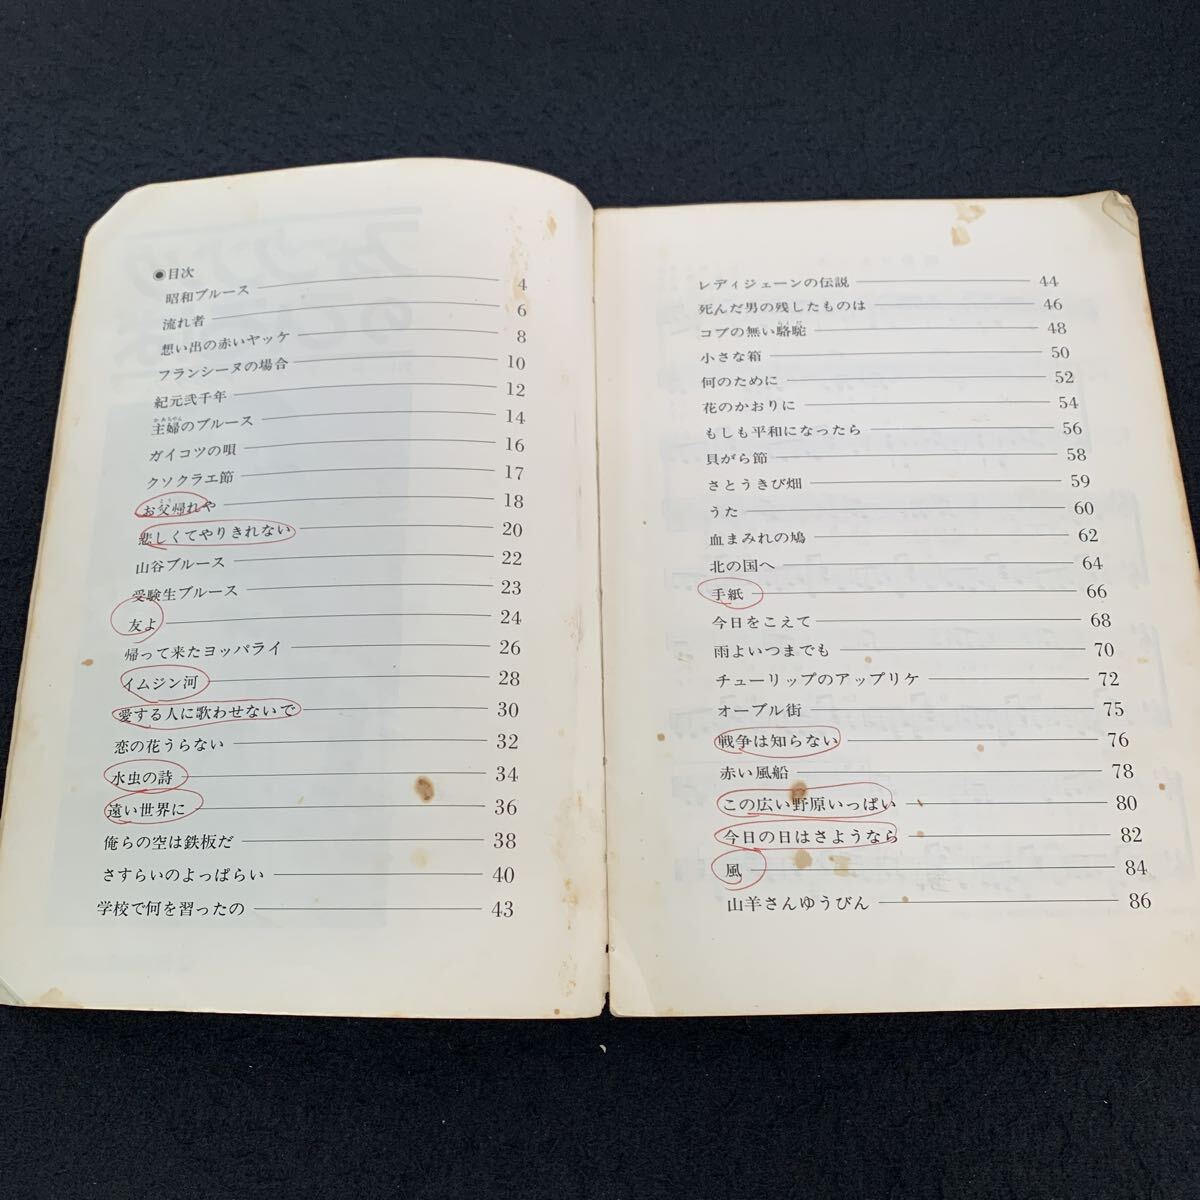 ◉目次
昭和ブルース 4
流れ者 6
想い出の赤いヤッケ 8
フランシーヌの場合 10
紀元弐千年 12
主婦のブルース 14
ガイコツの唄 16
クソクラエ節 17
お父帰れや 18
悲しくてやりきれない 20
山谷ブルース 22
受験生ブルース 23
友よ 24
帰って来たヨッパライ 26
イムジン河 28
愛する人に歌わせないで 30
恋の花うらない 32
水虫の詩 34
遠い世界に 36
俺らの空は鉄板だ 38
さすらいのよっぱらい 40
学校で何を習ったの 43
レディジェーンの伝説 44
死んだ男の残したものは 46
コブの無い駱駝 48
小さな箱 50
何のために 52
花のかおりに 54
もしも平和になったら 56
貝がら節 58
さとうきび畑 59
うた 60
血まみれの鳩 62
北の国へ 64
手紙 66
今日をこえて 68
雨よいつまでも 70
チューリップのアップリケ 72
オーブル街 75
戦争は知らない 76
赤い風船 78
この広い野原いっぱい 80
今日の日はさようなら 82
風 84
山羊さんゆうびん 86